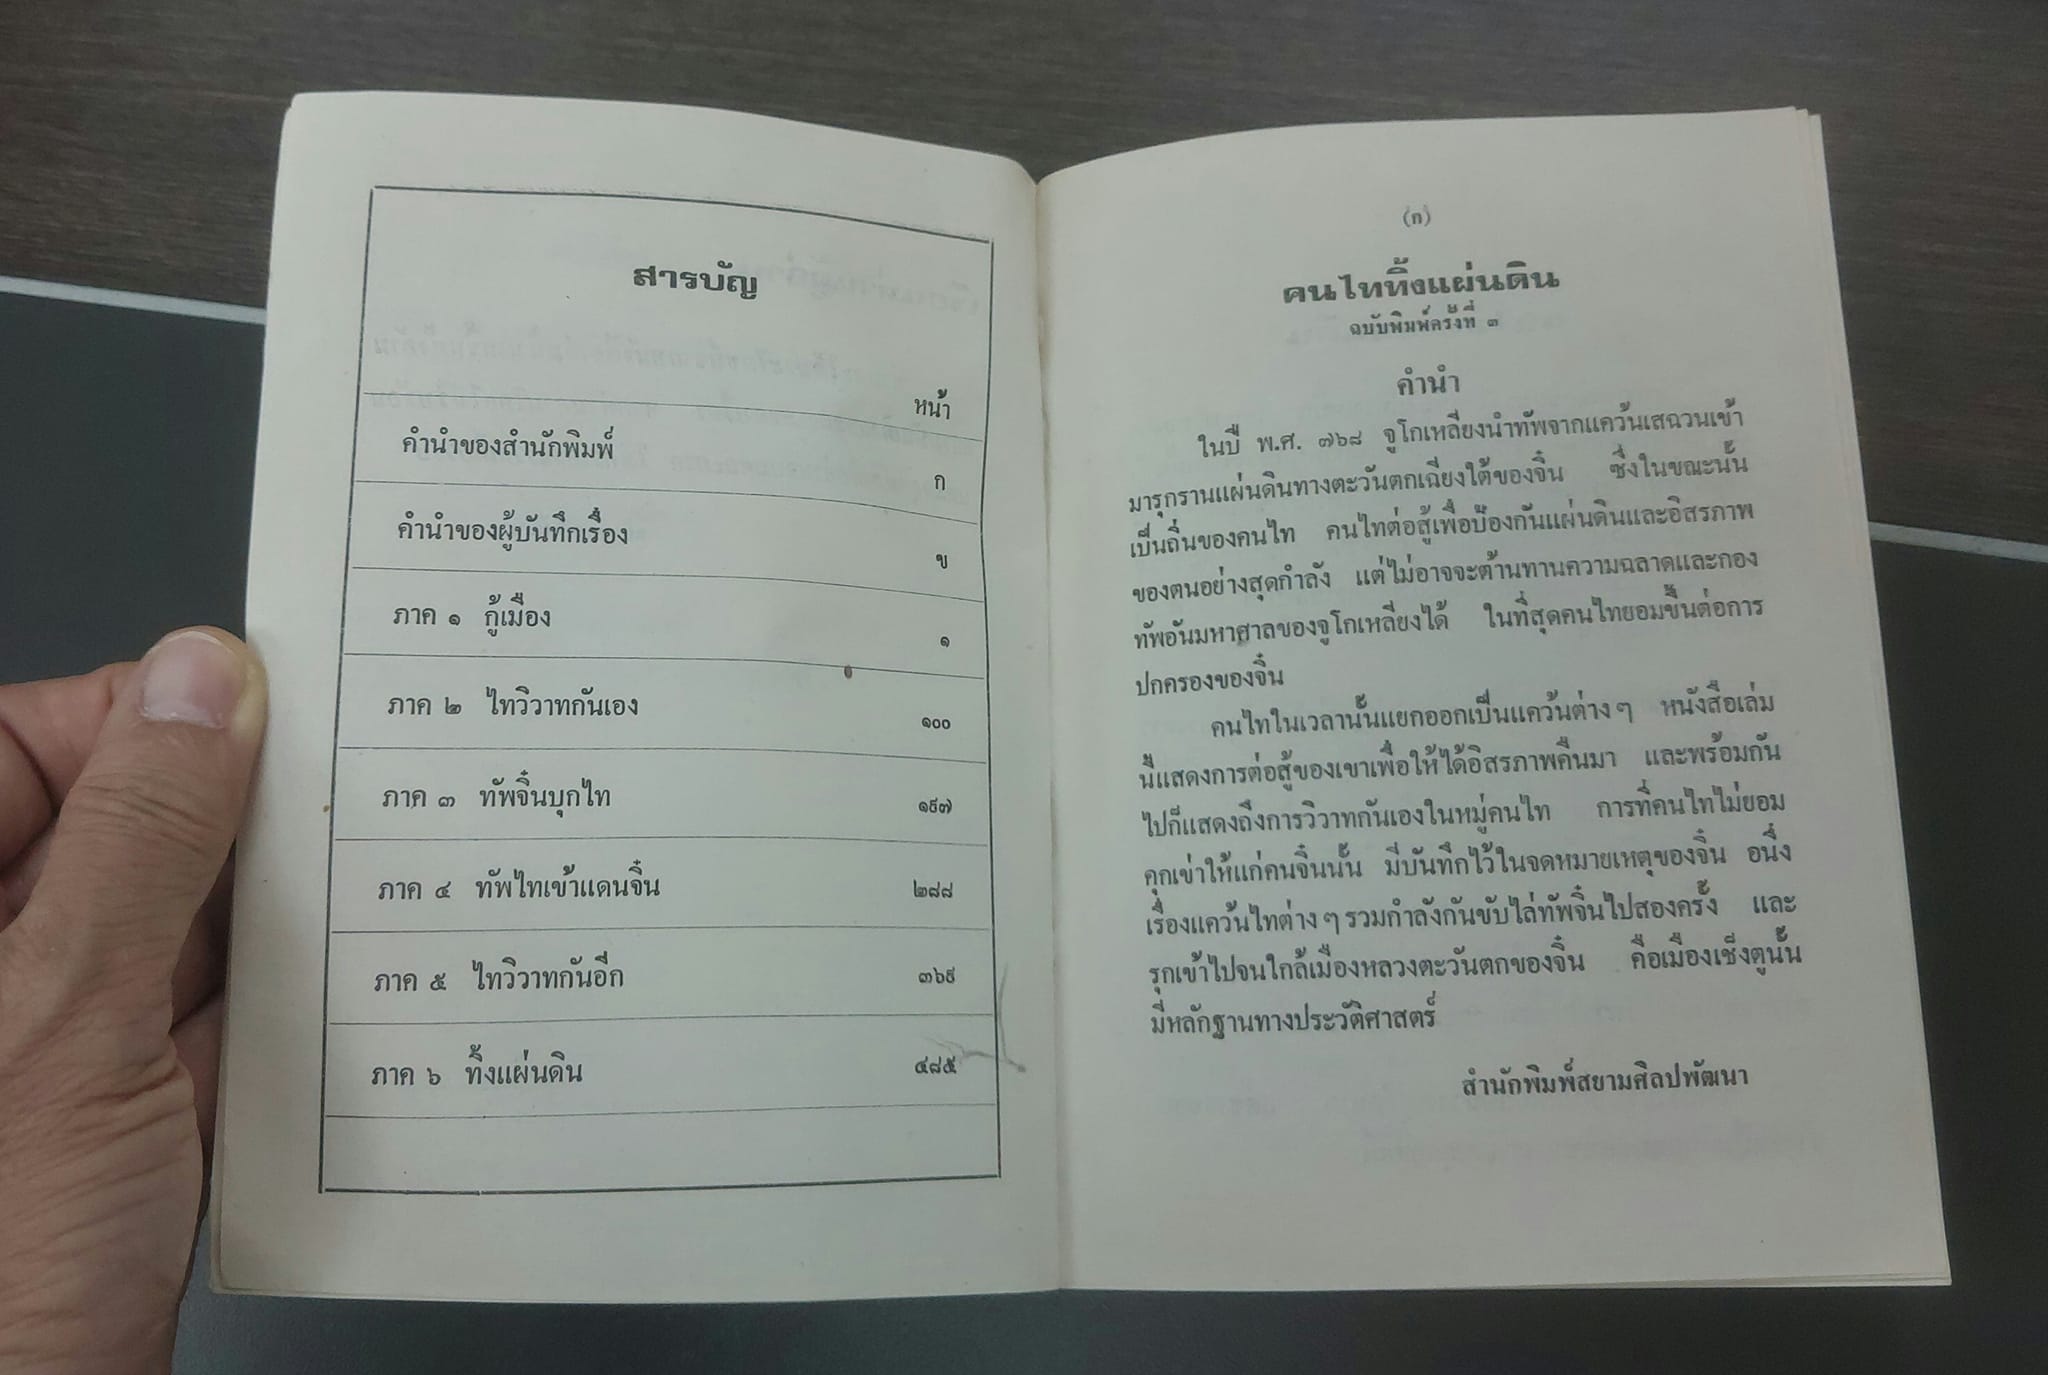 สารบัญ
หน้า
คำนำของสำนักพิมพ์ ก
คำนำของผู้บันทึกเรื่อง ข
ภาค ๑ กู้เมือง ๑
ภาค ๒ ไทวิวาทกันเอง ๑๐๐
ภาค ๓ ทัพจิ๋นบุกไท ๑๙๗
ภาค ๔ ทัพไทเข้าแดนจิ๋น ๒๘๘
ภาค ๕ ไทวิวาทกันอีก ๓๖๙
ภาค ๖ ทิ้งแผ่นดิน ๔๘๕
(ก)
คนไททิ้งแผ่นดิน
ฉบับพิมพ์ครั้งที่ ๓
คำนำ
ในปี พ.ศ. ๗๖๘ จูโกเหลียงนำทัพจากแคว้นเสฉวนเข้า
มารุกรานแผ่นดินทางตะวันตกเฉียงใต้ของจิ๋น ซึ่งในขณะนั้น
เป็นถิ่นของคนไท คนไทต่อสู้เพื่อป้องกันแผ่นดินและอิสรภาพ
ของตนอย่างสุดกำลัง แต่ไม่อาจจะต้านทานความฉลาดและกอง
ทัพอันมหาศาลของจูโกเหลียงได้ ในที่สุดคนไทยอมขึ้นต่อการ
ปกครองของจิ๋น
คนไทในเวลานั้นแยกออกเป็นแคว้นต่าง ๆ หนังสือเล่ม
นี้แสดงการต่อสู้ของเขาเพื่อให้ได้อิสรภาพคืนมา และพร้อมกัน
ไปก็แสดงถึงการวิวาทกันเองในหมู่คนไท การที่คนไทไม่ยอม
คุกเข่าให้แก่คนจิ๋นนั้น มีบันทึกไว้ในจดหมายเหตุของจิ๋น อนึ่ง
เรื่องแคว้นไทต่าง ๆ รวมกำลังกันขับไล่ทัพจิ๋นไปสองครั้ง และ
รุกเข้าไปจนใกล้เมืองหลวงตะวันตกของจิ๋น คือเมืองเช็งตูนั้น
มีหลักฐานทางประวัติศาสตร์
สำนักพิมพ์สยามศิลปพัฒนา